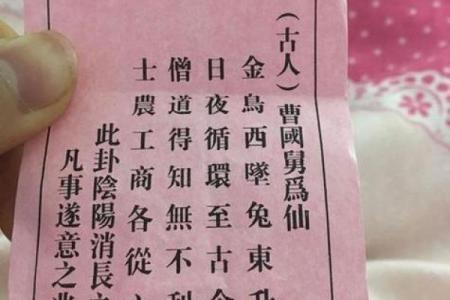 (古人)曹國舅爲仙
金烏西墜兔東升
日夜循環至古今
僧道得知無不利
士農工商各從
此卦陰陽消長之
凡事遂意之兆